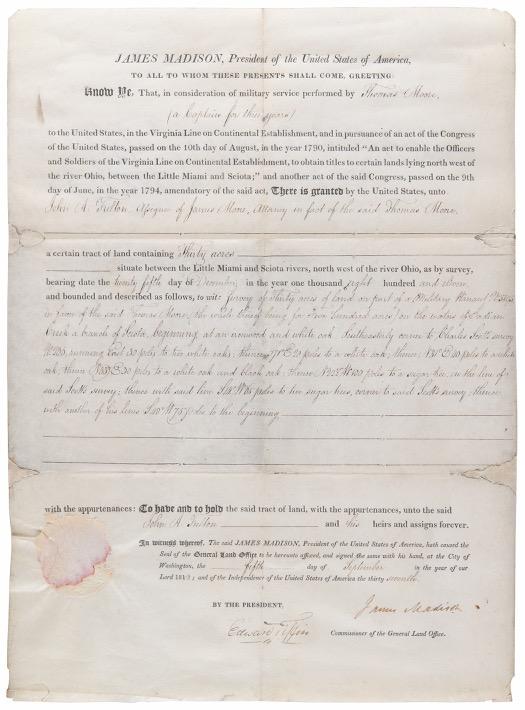 JAMES MADISON, President of the United States of America,
TO ALL TO WHOM THESE PRESENTS SHALL COME, GREETING:
Know Ye, That, in consideration of military service performed by Thomas Moore,
(a Captain for three years)
to the United States, in the Virginia Line on Continental Establishment, and in pursuance of an act of the Congress
of the United States, passed on the 10th day of August, in the year 1790, intituled "An act to enable the Officers
and Soldiers of the Virginia Line on Continental Establishment, to obtain titles to certain lands lying north west of the
river Ohio, between the Little Miami and Sciota;" and another act of the said Congress, passed on the 9th
day of June, in the year 1794, amendatory of the said act, There is granted by the United States, unto
John A. Fulton, Assignee of James Moore, Attorney in fact of the said Thomas Moore,
a certain tract of land containing Thirty acres
situate between the Little Miami and Sciota rivers, north west of the river Ohio, as by survey,
bearing date the twenty fifth day of December in the year one thousand eight hundred and eleven
and bounded and described as follows, to wit: Survey of thirty acres of land on part of a Military Warrant
in favor of the said Thomas Moore, on the waters of Indian
Creek a branch of Sciota, beginning at an ironwood and white oak Southeasterly corner to Charles Scott's survey
running East 30 poles to two white oaks; thence 20 poles to a white oak; thence
oak, thence 30 poles to a white oak and black oak; thence 100 poles to a sugar tree, in the line of
said Scott's survey; thence with said line poles to two sugar trees, corner to said Scott's survey; thence
with another of his lines poles to the beginning.
with the appurtenances: To have and to hold the said tract of land, with the appurtenances, unto the said
John A. Fulton and his heirs and assigns forever.
In witness whereof, The said JAMES MADISON, President of the United States of America, hath caused the
Seal of the General Land Office to be hereunto affixed, and signed the same with his hand, at the City of
Washington, the fifth day of September in the year of our
Lord 1812; and of the Independence of the United States of America the thirty seventh.
BY THE PRESIDENT,
James Madison
Edward Tiffin Commissioner of the General Land Office.